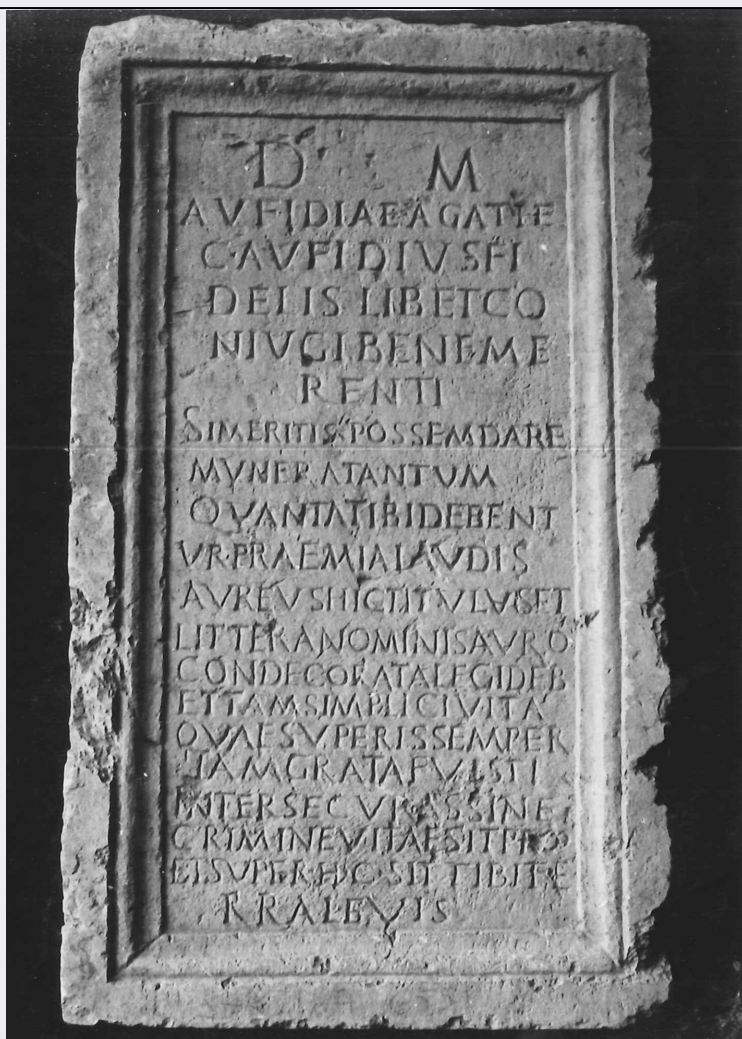 D M
AVFIDIAE AGATHE
C·AVFIDIVS FI
DELIS LIB ET CO
NIVGI BENE ME
RENTI
SI MERITIS POSSEM DARE
MVNERA TANTVM
QVANTA TIBI DEBENT
VR PRAEMIA LAVDIS
AVREVS HIC TITVLVS ET
LITTERA NOMINIS AVRO
CONDECORATA LEGI DEB
ET TAM SIMPLICI VITA
QVAE SVPERIS SEMPER
TAM GRATA FVISTI
INTER SECVRAS SINE
CRIMINE VITAE SIT PRO
ET SVPER HOC SIT TIBI TE
RRA LEVIS